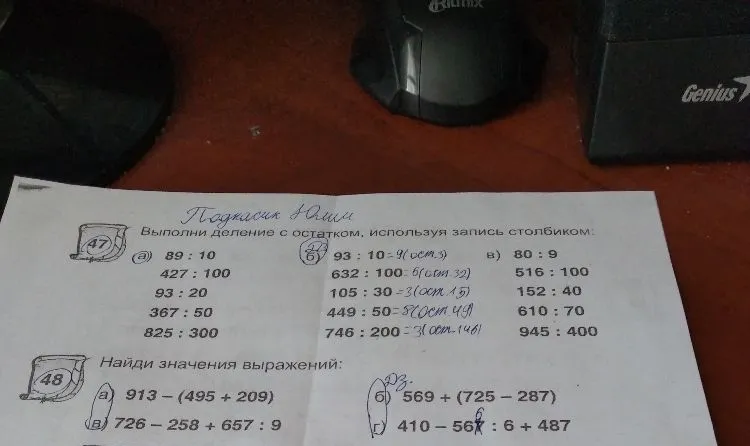 Ritmix
Genius
Подкасик Юлии
47 Выполни деление с остатком, используя запись столбиком:
дз
а) 89 : 10 б) 93 : 10 =9(ост.3) в) 80 : 9
427 : 100 632 : 100 =6(ост.32) 516 : 100
93 : 20 105 : 30 =3(ост.15) 152 : 40
367 : 50 449 : 50 =8(ост.49) 610 : 70
825 : 300 746 : 200 =3(ост.146) 945 : 400
48 Найди значения выражений:
дз.
а) 913 – (495 + 209) б) 569 + (725 – 287)
в) 726 – 258 + 657 : 9 г) 410 – 566 : 6 + 487